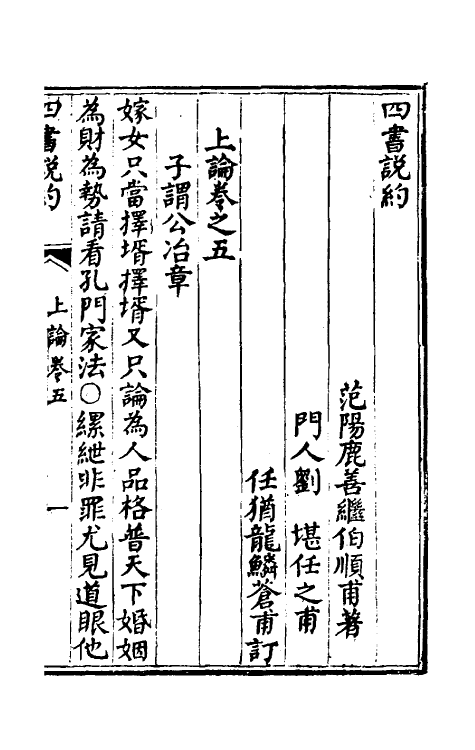 四書說約
范陽鹿善繼伯順甫著
門人劉　堪任之甫
任猶龍鱗蒼甫訂
上論卷之五
子謂公冶章
嫁女只當擇壻擇壻又只論為人品格普天下婚姻
為財為勢請看孔門家法○縲紲非罪尤見道眼他
四書說約
上論卷五
一